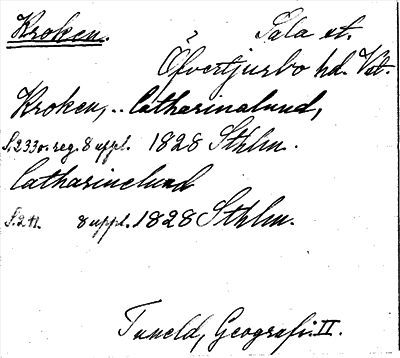 Kroken. Sala st.
Öfvertjurbo hd. Vstm.
Kroken, .. Catharinalund,
S. 233 o. reg. 8 uppl. 1828 Sthlm.
Catharinelund
S. 211. 8 uppl. 1828 Sthlm.
Tuneld, Geografi. II.